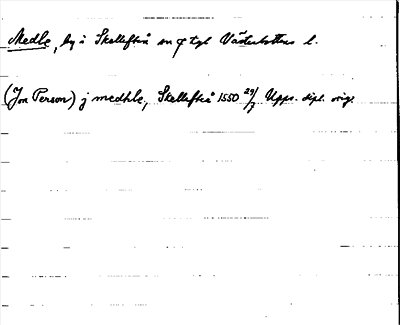 Medle, by i Skellefteå sn o tgl Västerbottens l.
(Jon Person) j medhle, Skellefteå 1550 29/7 Upps. dipl. orig.